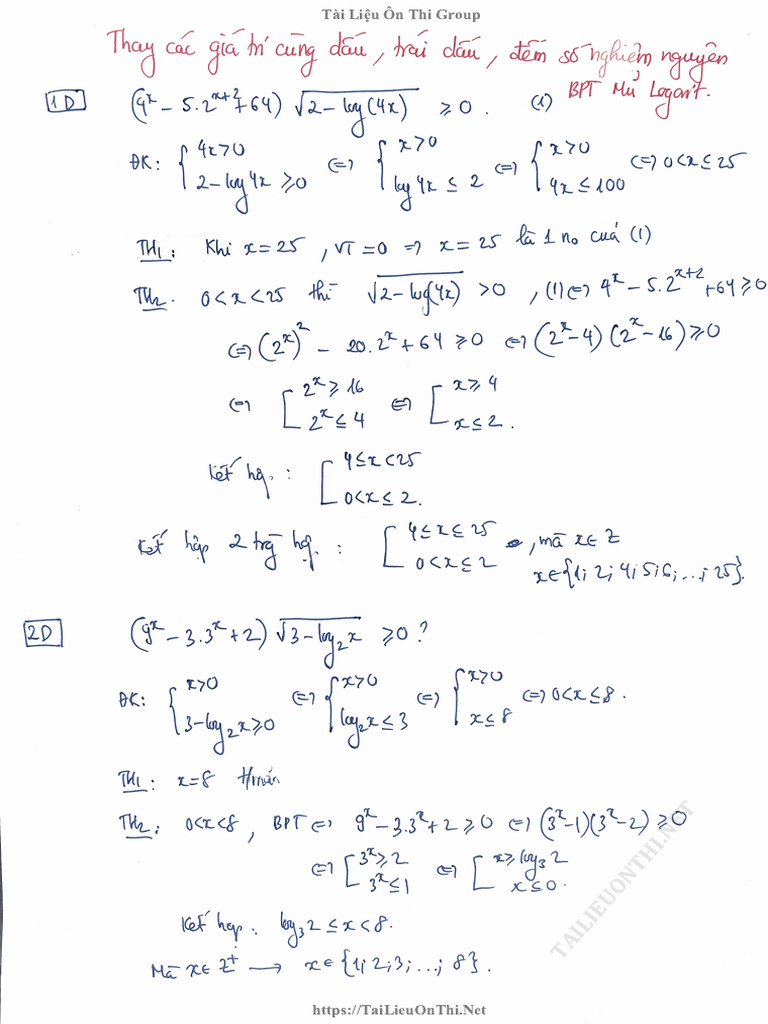 Tài Liệu Ôn Thi Group
Thay các giá trị cùng dấu, trái dấu, đếm số nghiệm nguyên
BPT Mũ Logarit.
1D (4^x - 5.2^{x+2} + 64) √(2 - log(4x)) ≥ 0. (1)
ĐK: { 4x > 0 ; 2 - log4x ≥ 0 ⇔ { x > 0 ; log4x ≤ 2 ⇔ { x > 0 ; 4x ≤ 100 ⇔ 0 < x ≤ 25
TH1: Khi x = 25, VT = 0 ⇒ x = 25 là 1 no của (1)
TH2. 0 < x < 25 thì √(2 - log(4x)) > 0, (1) ⇔ 4^x - 5.2^{x+2} + 64 ≥ 0
⇔ (2^x)^2 - 20.2^x + 64 ≥ 0 ⇔ (2^x - 4)(2^x - 16) ≥ 0
⇔ [ 2^x ≥ 16 ; 2^x ≤ 4 ⇔ [ x ≥ 4 ; x ≤ 2.
Kết hợp: [ 4 ≤ x < 25 ; 0 < x ≤ 2.
Kết hợp 2 trg hợp: [ 4 ≤ x ≤ 25 ; 0 < x ≤ 2, mà x ∈ Z
x ∈ {1; 2; 4; 5; 6; ...; 25}.
2D (9^x - 3.3^x + 2) √(3 - log_2 x) ≥ 0?
ĐK: { x > 0 ; 3 - log_2 x ≥ 0 ⇔ { x > 0 ; log_2 x ≤ 3 ⇔ { x > 0 ; x ≤ 8 ⇔ 0 < x ≤ 8.
TH1: x = 8 t/mãn
TH2: 0 < x < 8, BPT ⇔ 9^x - 3.3^x + 2 ≥ 0 ⇔ (3^x - 1)(3^x - 2) ≥ 0
⇔ [ 3^x ≥ 2 ; 3^x ≤ 1 ⇔ [ x ≥ log_3 2 ; x ≤ 0.
Kết hợp: log_3 2 ≤ x < 8.
Mà x ∈ Z^+ → x ∈ {1; 2; 3; ...; 8}.
TAILIEUONTHI.NET
https://TaiLieuOnThi.Net